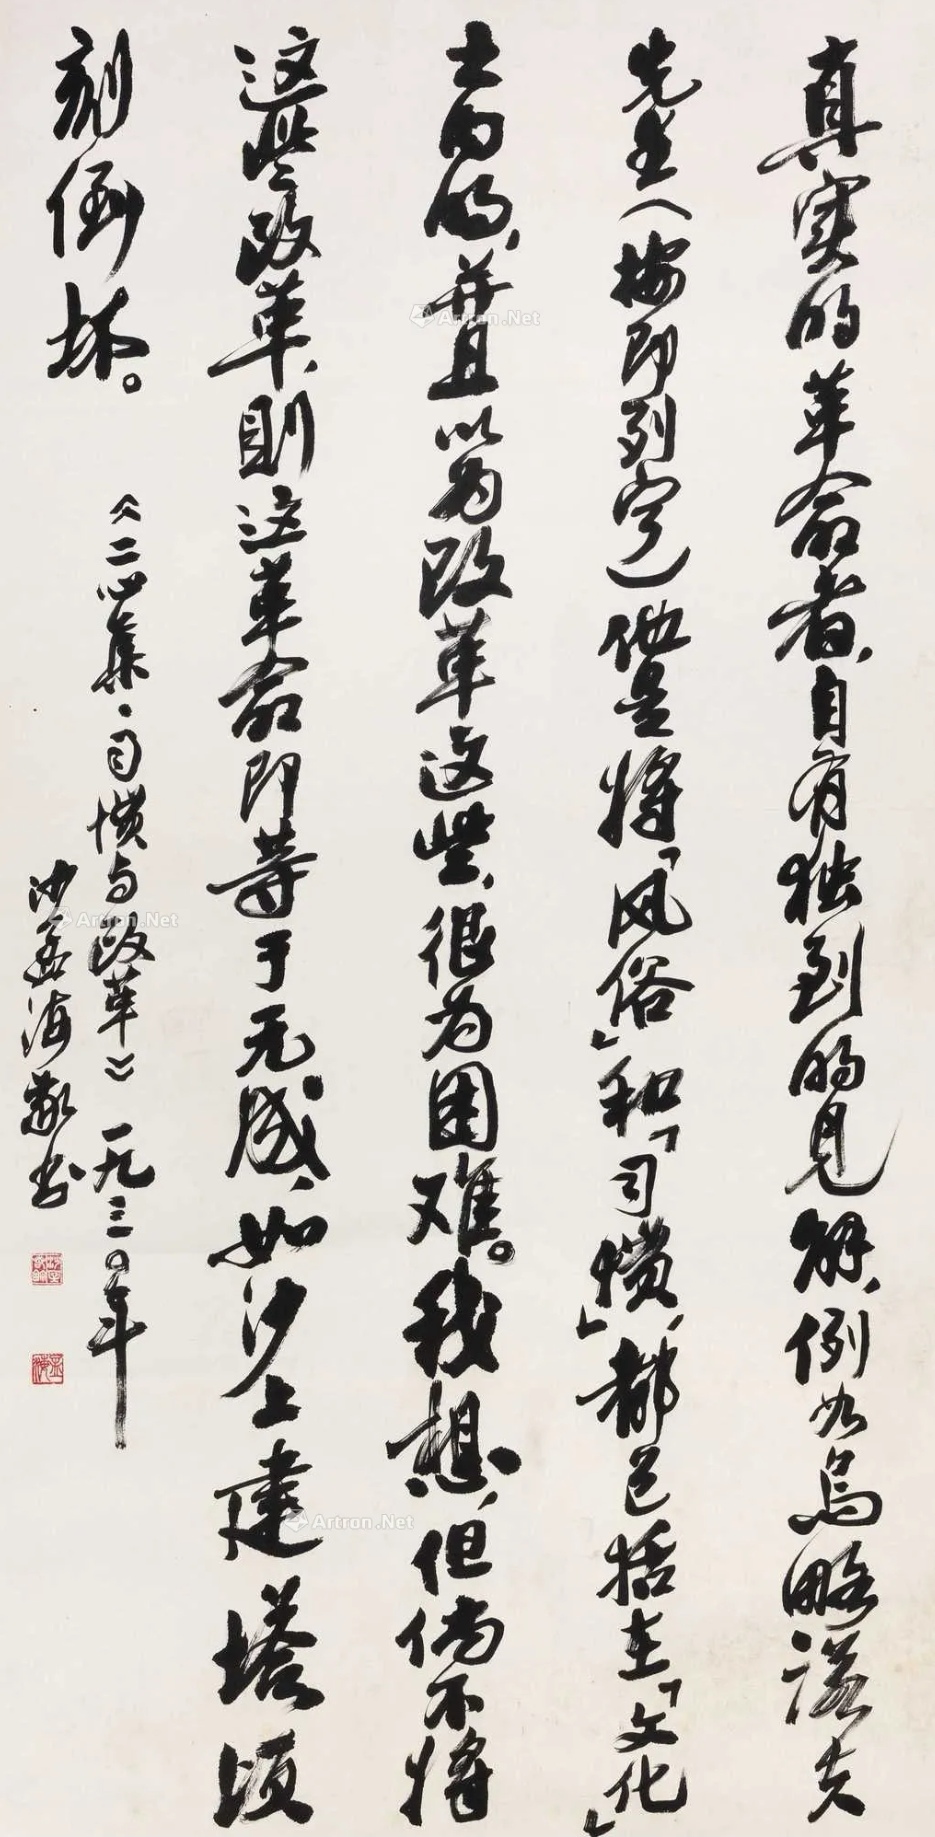 真实的革命者,自有独到的见解,例如乌略诺夫
先生(按即列宁)他是将「风俗」和「习惯」,都包括在「文化」
之内的,并且以为改革这些,很为困难。我想,但倘不将
这些改革,则这革命即等于无成,如沙上建塔顷
刻倒坏。
《二心集·习惯与改革》一九三〇年
沙孟海敬书
Artron.Net
Artron.Net
Artron.Net